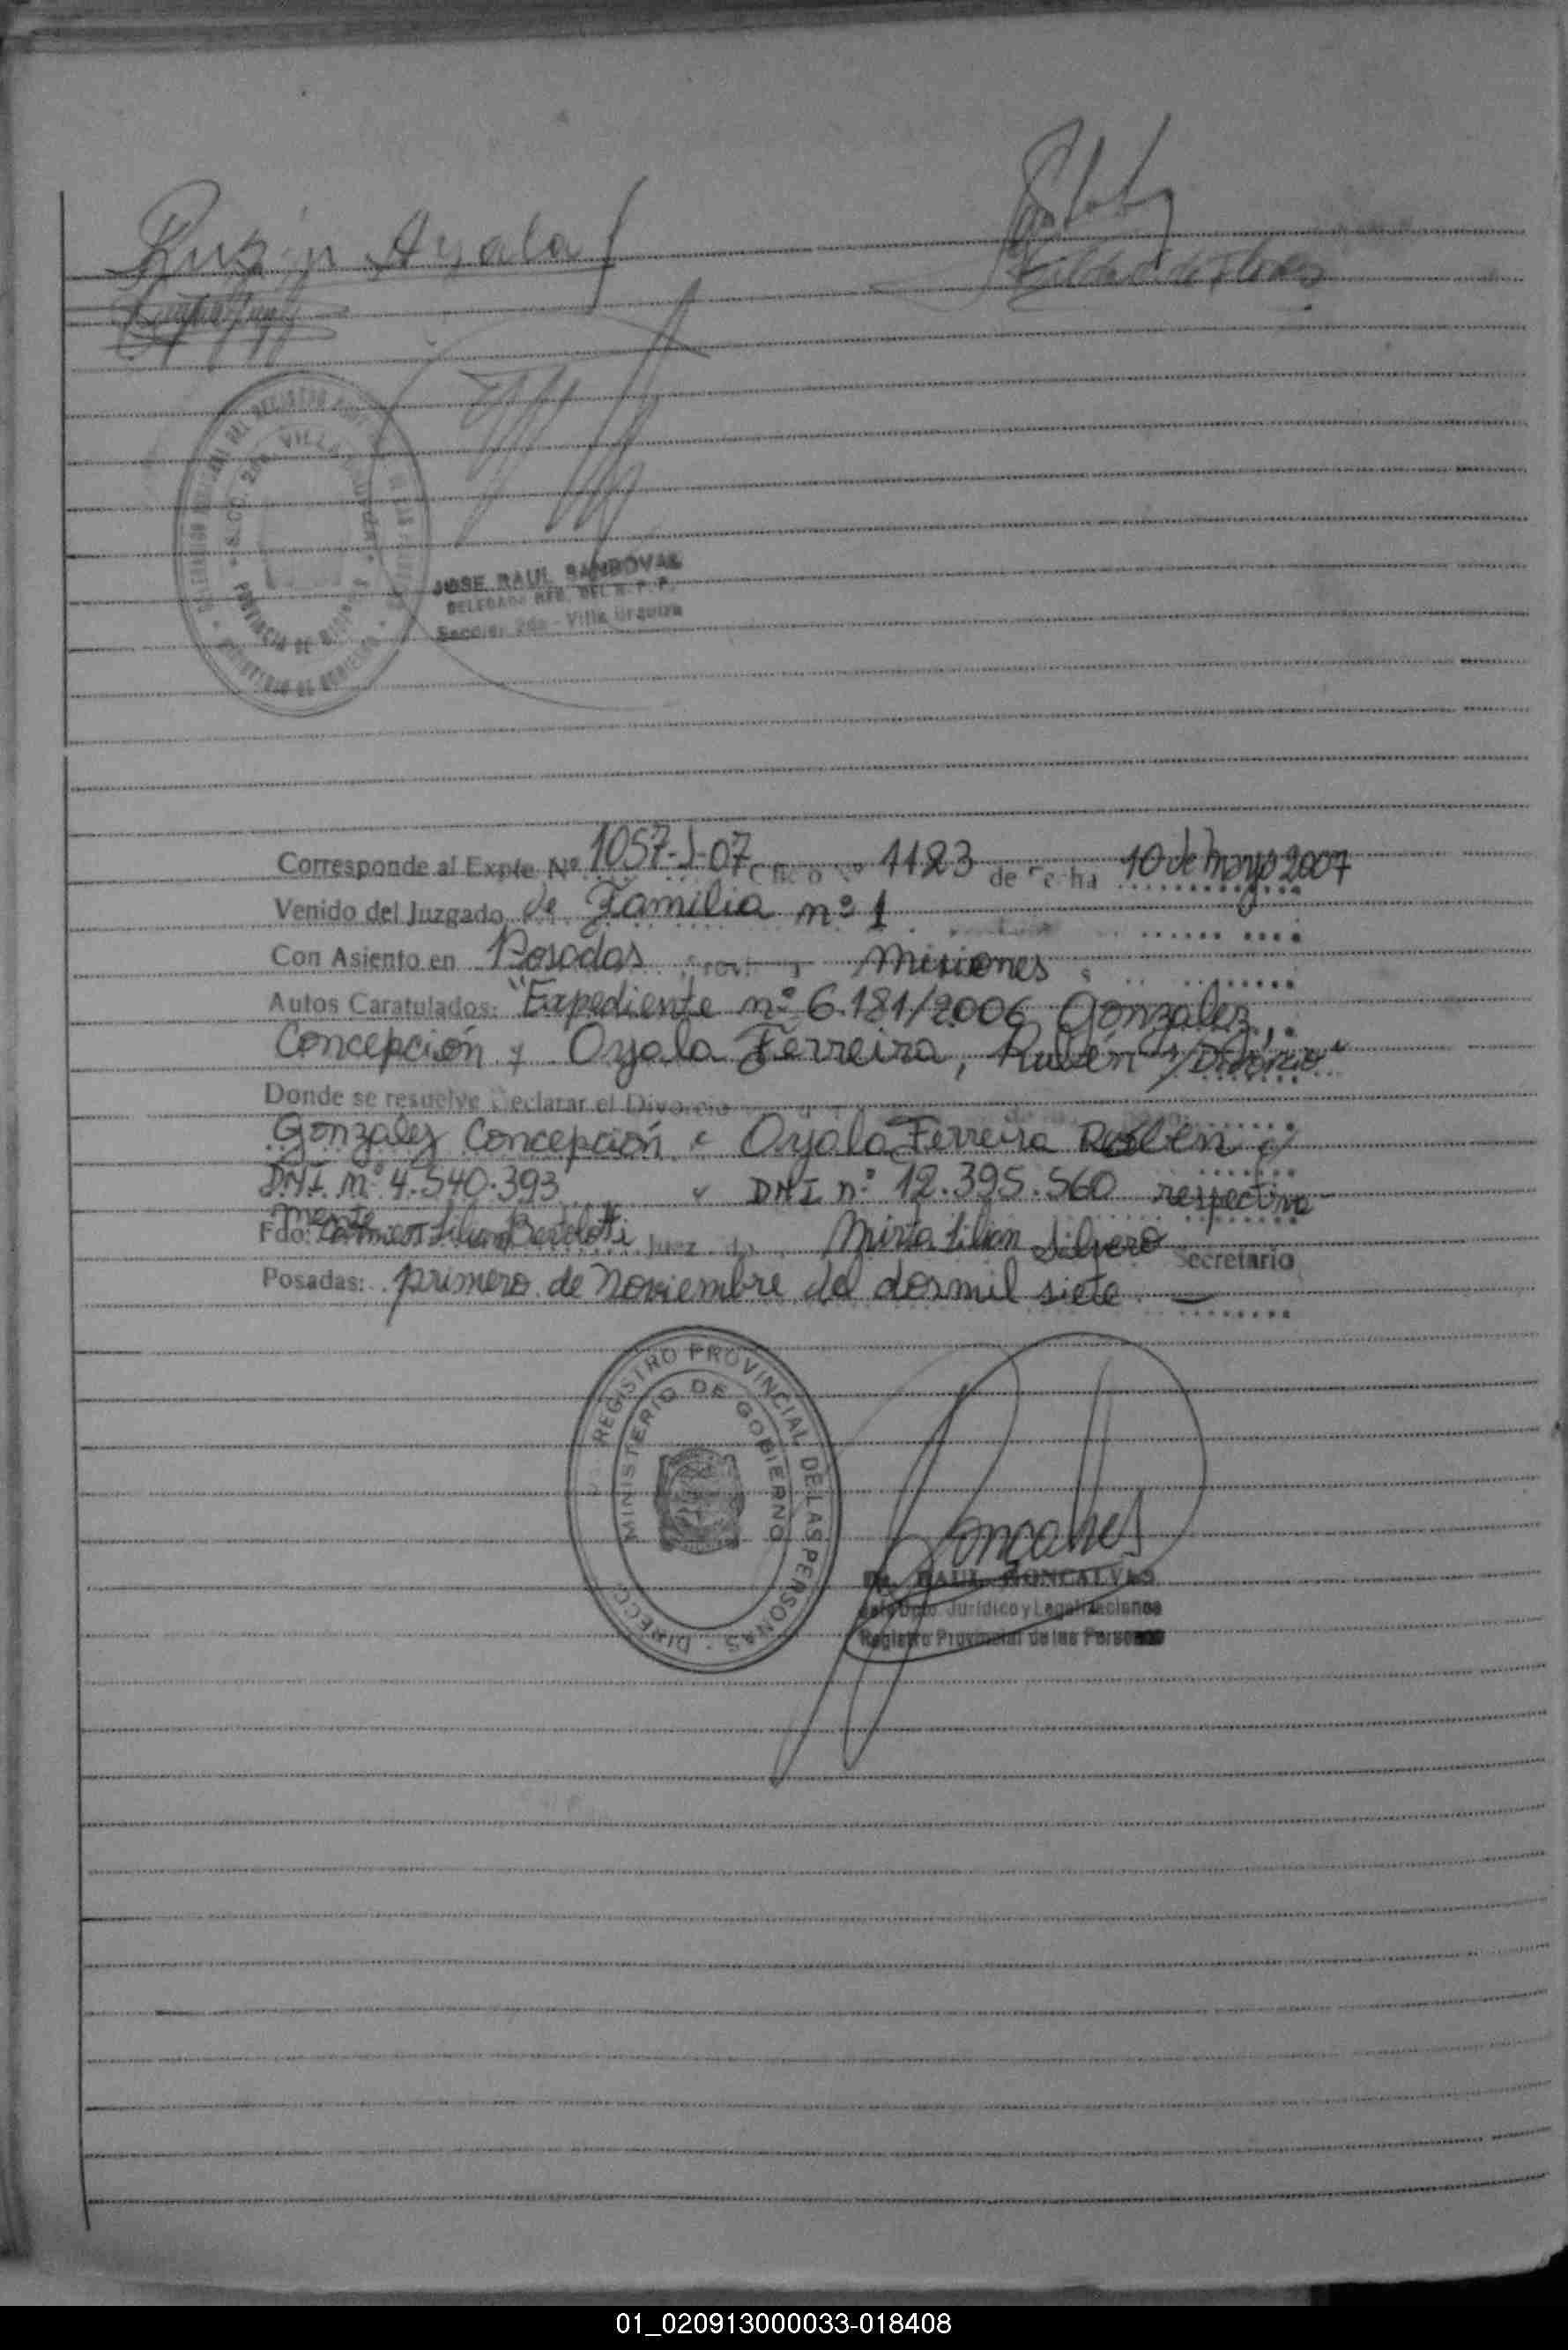 Ayala
JOSE RAUL SANDOVAL
DELEGADO REG. DEL R. P. P.
Sección 2da - Villa Urquiza
Corresponde al Expte Nº 1057-J-07 Oficio Nº 1123 de Fecha 10 de mayo 2007
Venido del Juzgado de Familia nº 1
Con Asiento en Posadas Misiones
Autos Caratulados: "Expediente nº 6.181/2006 Gonzalez,
Concepción y Oyala Ferreira, Rubén s/Divorcio"
Donde se resuelve Declarar el Divorcio
Gonzalez Concepción Oyala Ferreira Rubén
DNI nº 4.540.393 y DNI nº 12.395.560 respectiva-
mente
Fdo: Bertolotti Juez Mirta Lilian Silvero Secretario
Posadas: primero de Noviembre del dosmil siete
REGISTRO PROVINCIAL DE LAS PERSONAS - DIRECC
MINISTERIO DE GOBIERNO
Goncalves
Dr. RAUL GONCALVES
Jefe Dpto. Jurídico y Legalizaciones
Registro Provincial de las Personas
01_020913000033-018408